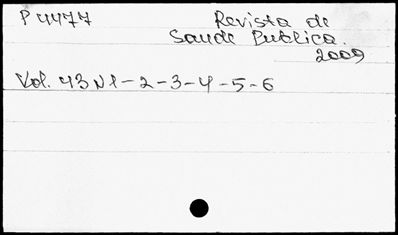 P4477 Revista de
Saude Publica.
2009
Vol. 43 N1-2-3-4-5-6